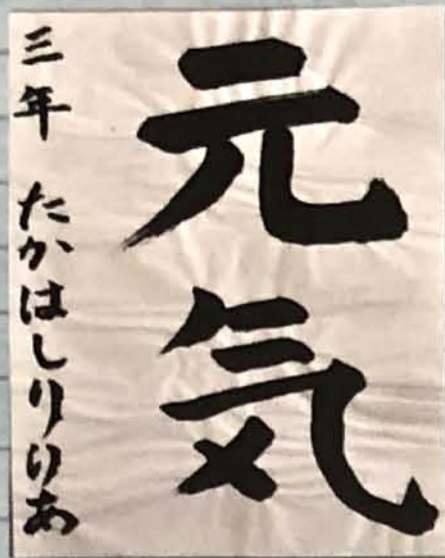 元気
三年 たかはしりりあ